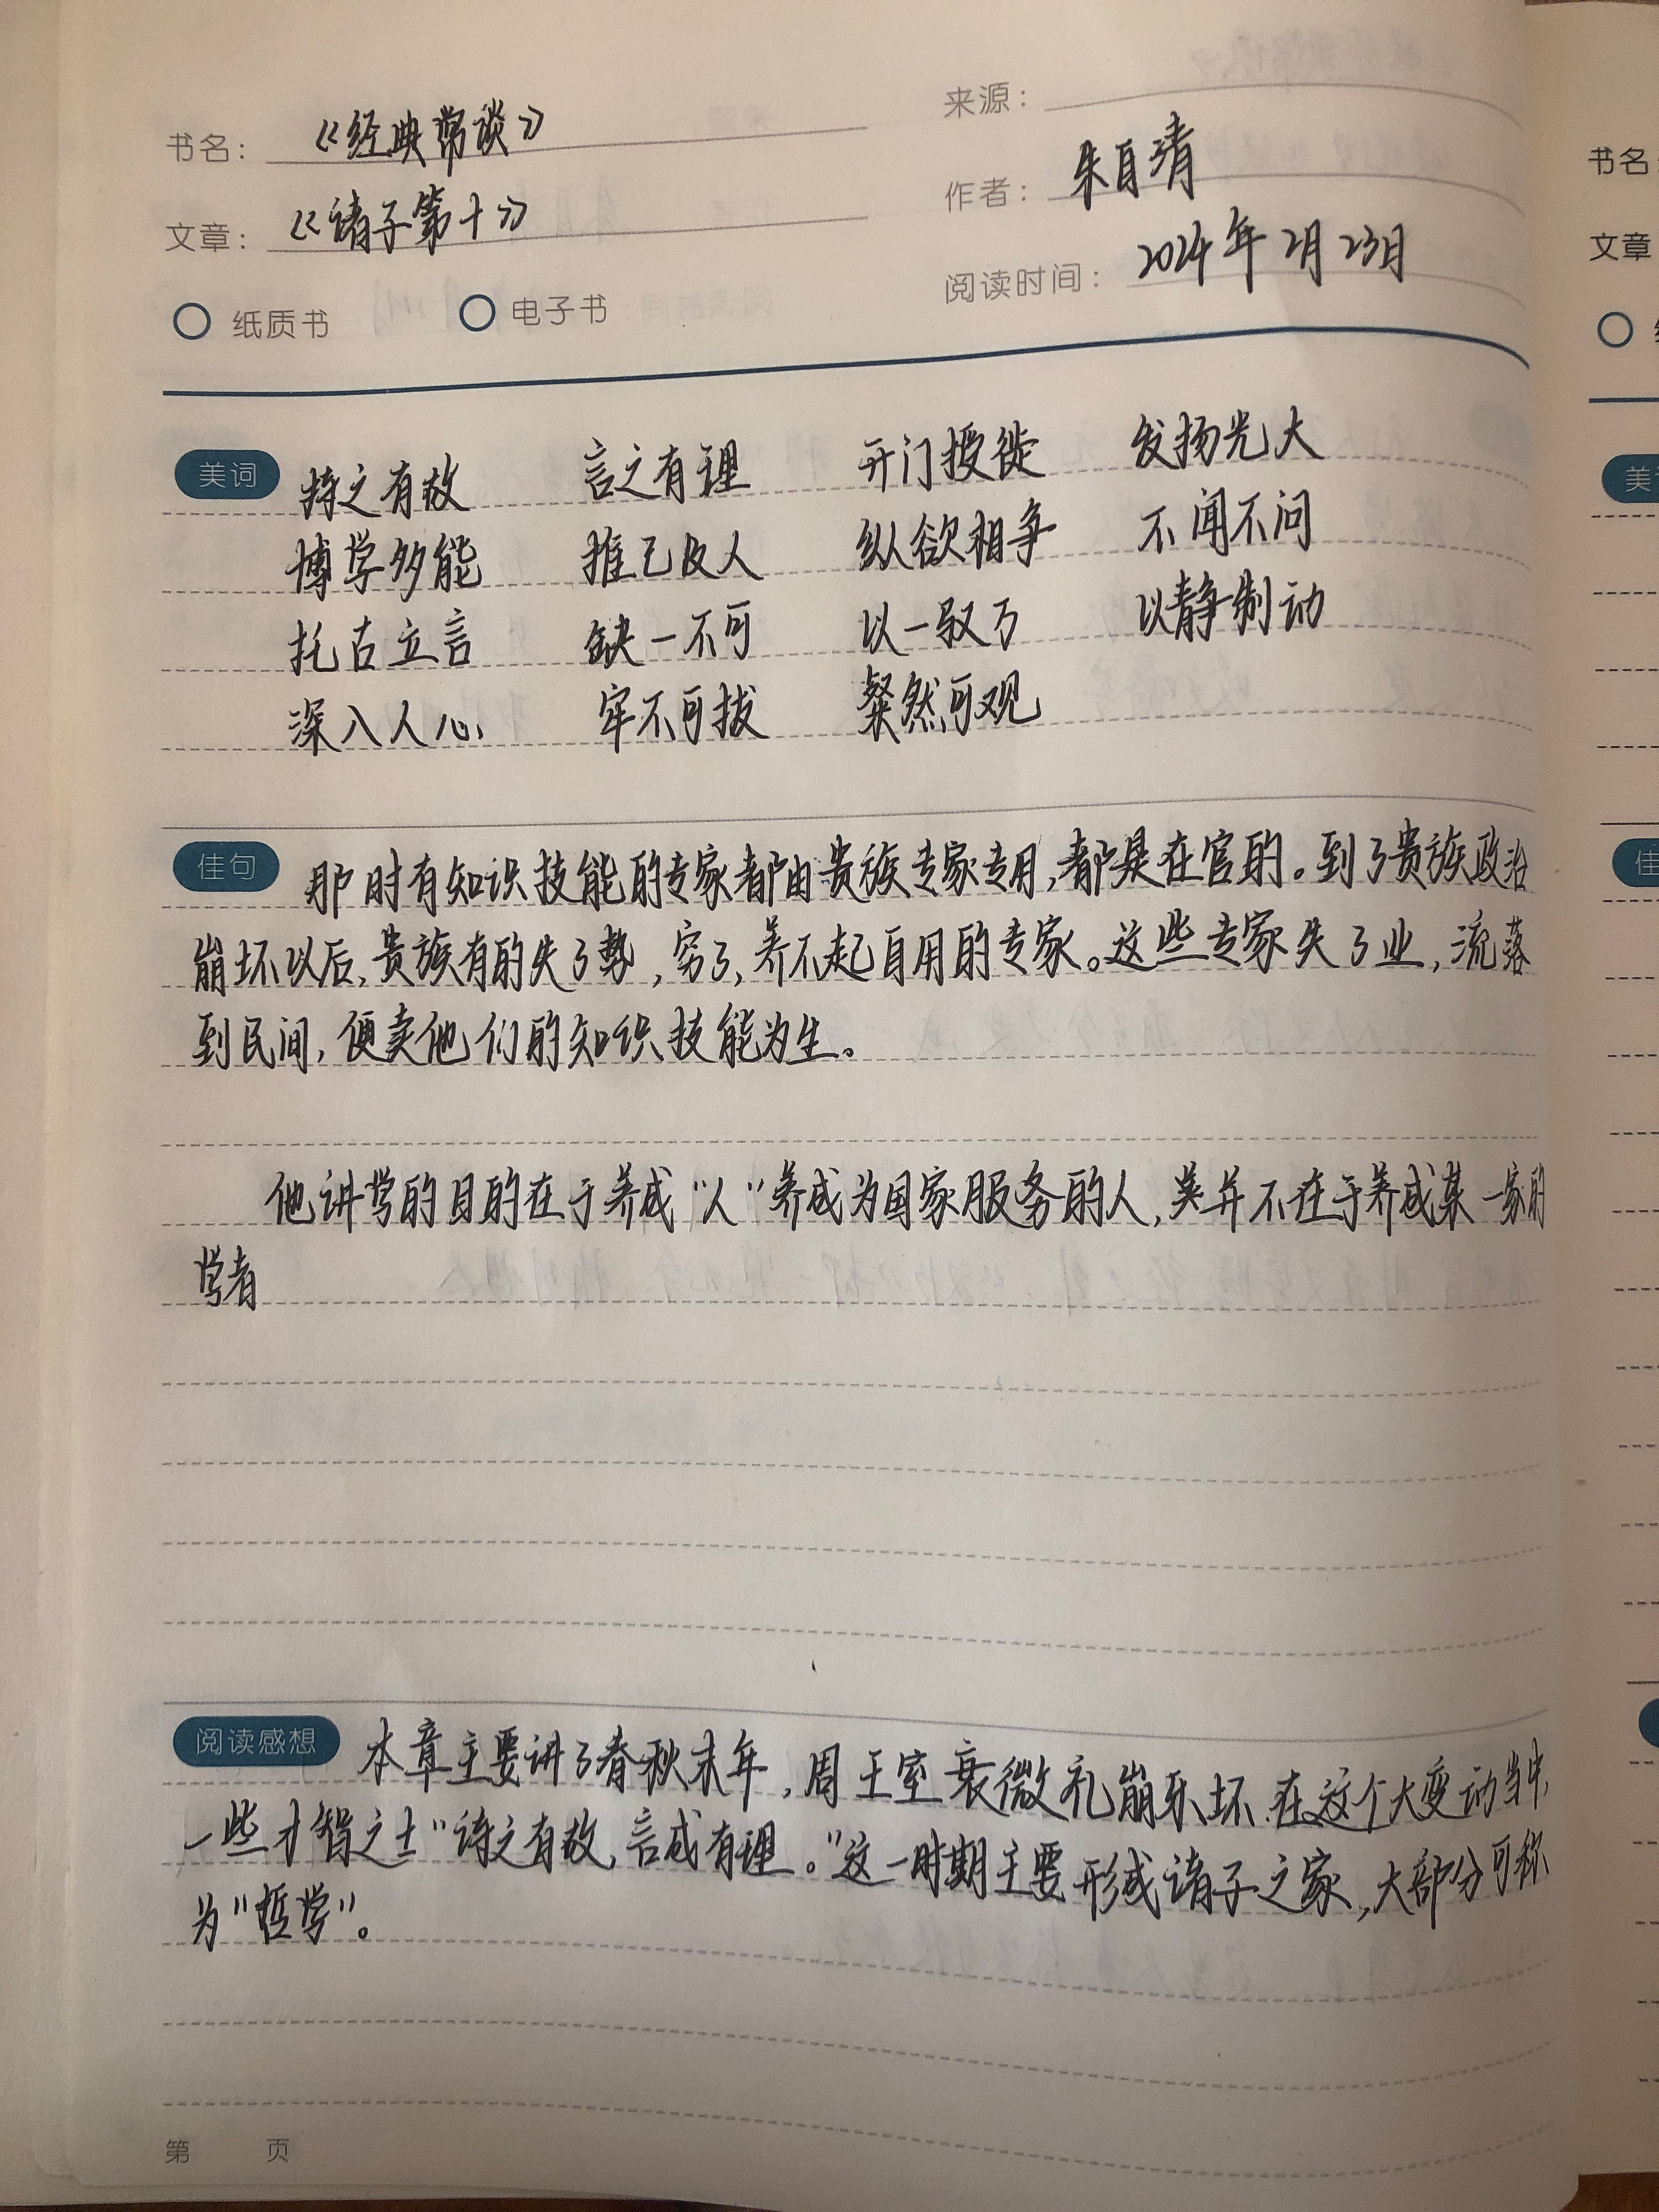 书名：《经典常谈》
来源：
文章：《诸子第十》
作者：朱自清
纸质书 电子书
阅读时间：2024年2月23日
美词 持之有故 言之有理 开门授徒 发扬光大
博学多能 推己及人 纵欲相争 不闻不问
托古立言 缺一不可 以一驭万 以静制动
深入人心 牢不可拔 粲然可观
佳句 那时有知识技能的专家都由贵族专家专用，都是在官的。到了贵族政治
崩坏以后，贵族有的失了势，穷了，养不起自用的专家。这些专家失了业，流落
到民间，便卖他们的知识技能为生。
他讲学的目的在于养成“人”养成为国家服务的人，并不在于养成某一家的
学者
阅读感想 本章主要讲了春秋末年，周王室衰微礼崩乐坏.在这个大变动当中
一些才智之士“持之有故，言成有理。”这一时期主要形成诸子之家，大部分可称
为“哲学”。
第 页
书名
文章